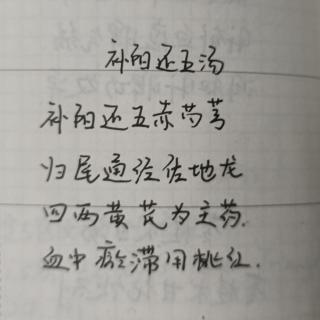 补阳还五汤
补阳还五赤芍芎
归尾通经佐地龙
四两黄芪为主药.
血中瘀滞用桃红.